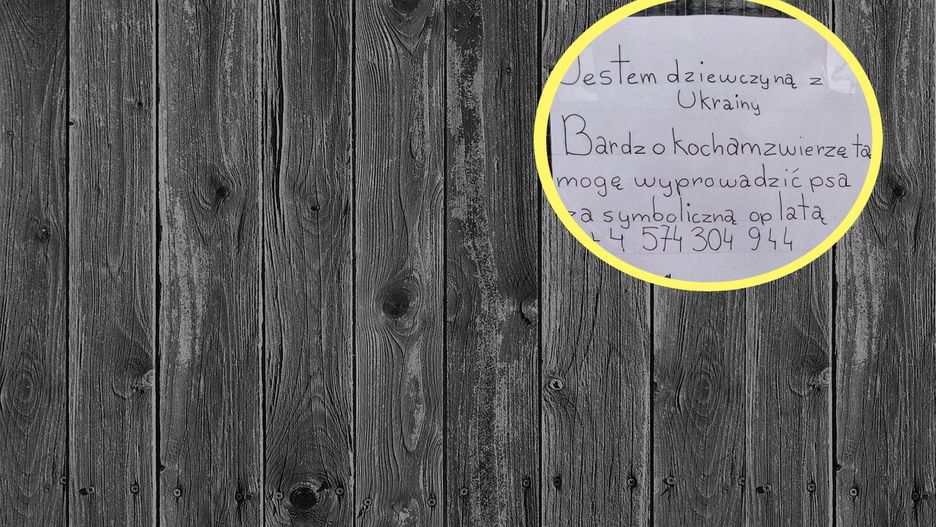 Jestem dziewczyną z
Ukrainy
Bardzo kocham zwierzęta
mogę wyprowadzić psa
za symboliczną oplatą
574 304 944